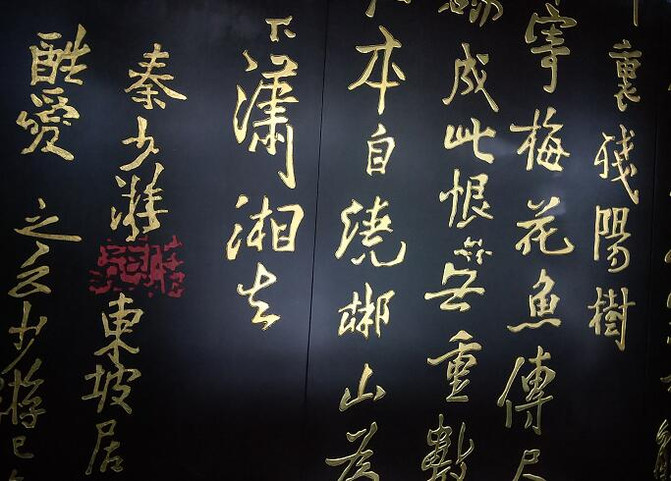 裏殘陽樹
寄梅花魚傳尺
成此恨無重數
本自繞郴山為
下瀟湘去
秦少游 東坡居
酷愛之云少游已